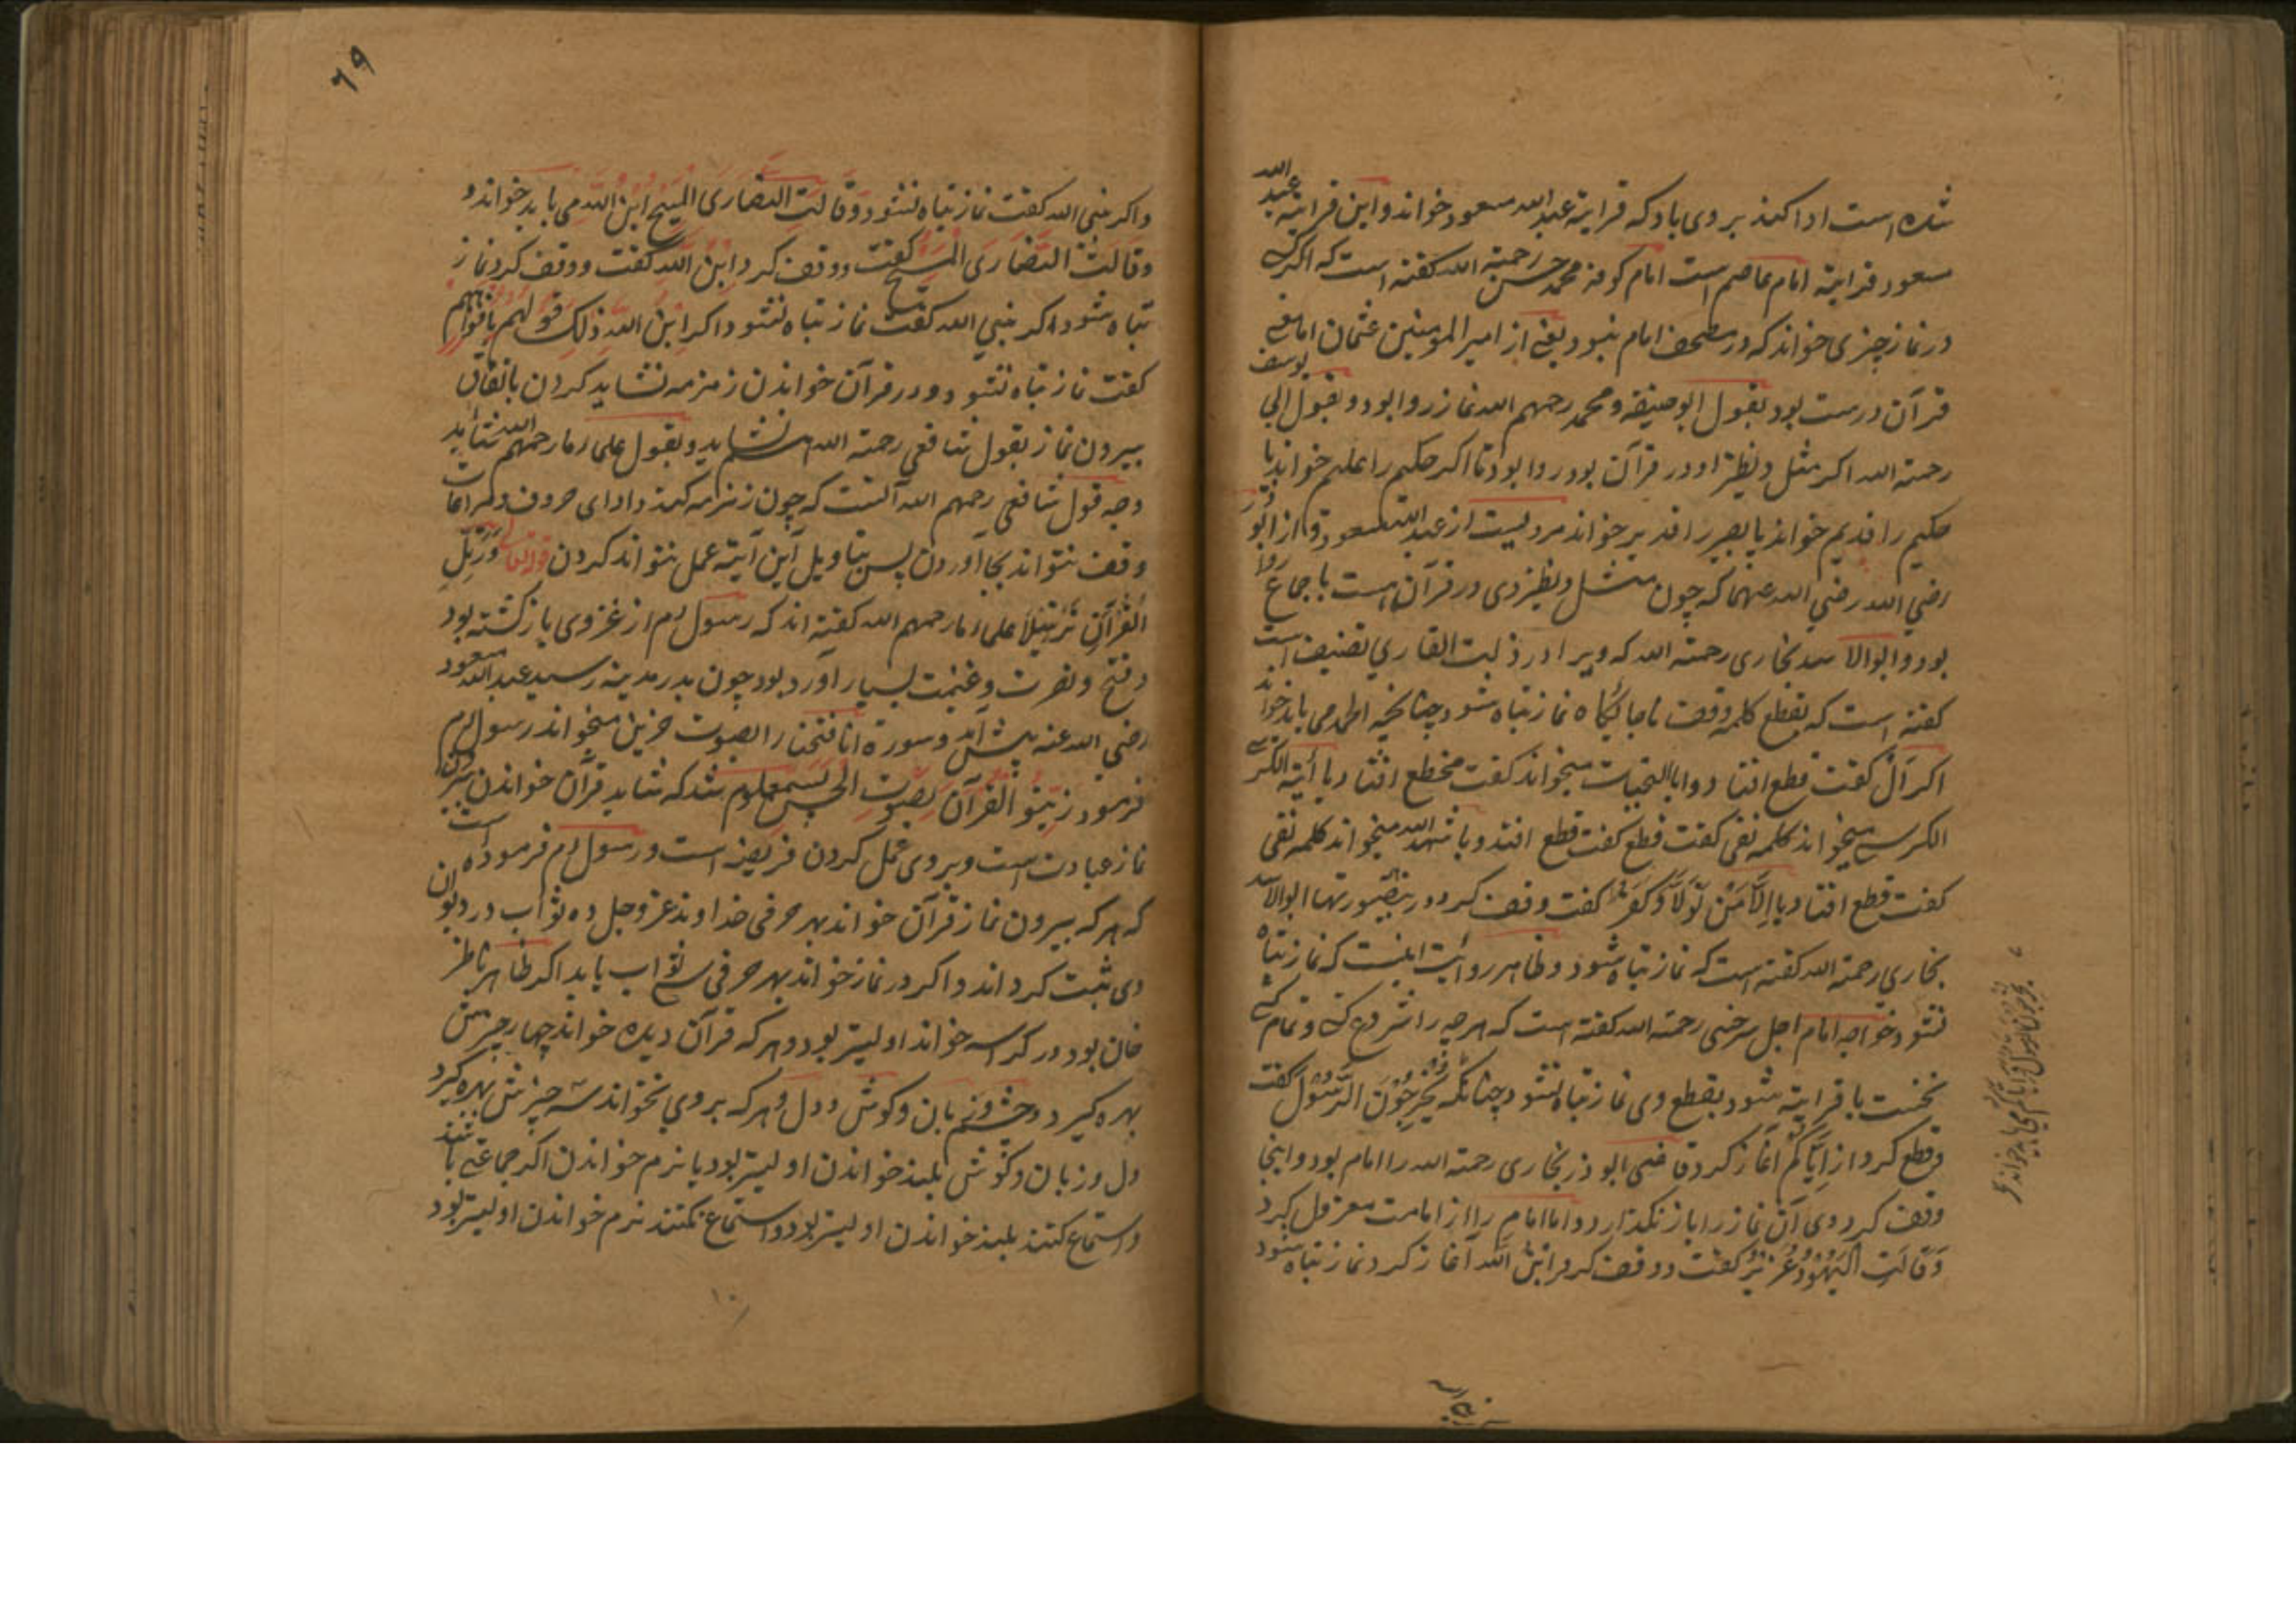 شده است ادا کند بر وی باد که قرایة عبد الله مسعود خواند و این قرایة عبد الله
مسعود قرایة امام عاصم است امام کوفه محمد حسن رحمة الله کفته است که اکر
در نماز چیزی خواند که در مصحف امام نبود یعنی از امیر المومنین عثمان اما معنی
قرآن درست بود بقول ابو حنیفه و محمد رحمهم الله نماز روا بود و بقول ابی یوسف
رحمة الله اکر مثل و نظیر او در قرآن بود روا بود تا اکر حکیم را علیم خواند یا
حکیم را قدیم خواند یا بصیر را قدیر خواند مرویست از عبد الله مسعود و از ابو
رضی الله رضی الله عنهما که چون مثل و نظیر وی در قرآن است باجماع روا
بود و ابوالاسد بخاری رحمة الله که ویرا در زلت القاری تصنیف است
کفته است که بقطع کلمه وقف ناجایکاه نماز تباه شود چنانچه الحمد می باید خواند
اکر اَلْ کفت قطع افتاد و یا التحیات میخواند کفت قطع افتاد یا آیة الکرسی
الکرسی میخواند کلمه نفی کفت قطع کفت قطع افتد و یا شهد الله میخواند کلمه نفی
کفت قطع افتاد یا اِلَّا مَنْ تَوَلّٰا وَکَفَرَ کفت وقف کرد در اینصورتها ابوالاسد
بخاری رحمة الله کفته است که نماز تباه شود و ظاهر روایت اینست که نماز تباه
نشود و خواجه امام اجل سرخسی رحمة الله کفته است که هر چه را شروع
نخست با قرایة شود بقطع وی نماز تباه نشود چنانکه یُخْرِجُوْنَ الرَّسُوْلَ کفت
و قطع کرد از اِیَّاکُمْ آغاز کرد قاضی ابوذر بخاری رحمة الله را امام بود و اینجا
وقف کرد وی آن نماز را باز نکذارد و اما امام را از امامت معزول کرد
وَقَالَتِ الْیَهُوْدُ عُزَیْرٌ کفت و وقف کرد و ابْنُ الله آغاز کرد نماز تباه شود
٦٩
و اکر نبی الله کفت نماز تباه نشود و وَقَالَتِ النَّصَارَی الْمَسِیْحُ ابْنُ اللّٰه می باید خواند و
وَقَالَتْ النَّصَارَی الْمَسِیْحُ کفت و وقف کرد و ابْنُ اللّٰه کفت و وقف کرد نماز
تباه شود اکر نبی الله کفت نماز تباه نشود و اکر ابْنُ اللّٰهِ ذٰلِکَ قَوْلُهُمْ بِاَفْوَاهِهِمْ
کفت نماز تباه نشود و در قرآن خواندن زمزمه نشاید کردن باتفاق
بیرون نماز بقول شافعی رحمة الله نشاید و بقول علماء ما رحمهم الله شاید
وجه قول شافعی رحمهم الله آنست که چون زمزمه کند و ادای حروف و مراعات
وقف نتواند بجا آوردن پس بتاویل این آیة عمل نتواند کردن قوله تعالی وَرَتِّلِ
الْقُرْآنَ تَرْتِیْلًا علماء ما رحمهم الله کفته اند که رسول م از غزوی باز کشته بود
و فتح و نصرت و غنیمت بسیار آورد بود چون بدر مدینه رسید عبد الله مسعود
رضی الله عنه پیش آمد و سورة انا فتحنا را بصوت حزین میخواند رسول م
فرمود زَیِّنُو الْقُرْآنَ بِصَوْتِ الْحَسَنِ معلوم شد که شاید قرآن خواندن بیرون
نماز عبادت است و بر وی عمل کردن فریضه است و رسول م فرموده است
که هر که بیرون نماز قرآن خواند بهر حرفی خداوند عز و جل ده ثواب در دیوان
وی ثبت کرداند و اکر در نماز خواند بهر حرفی سی ثواب یابد اکر ظاهر ناظر
خان بود در کراسه خواند اولیتر بود و هر که قرآن دیده خواند چهار چیزش
بهره کیرد و چشم و زبان و کوش و دل و هر که بر وی بخواند سه چیزش بهره کیرد
دل و زبان و کوش بلند خواندن اولیتر بود یا نرم خواندن اکر جماعتی باشند
و استماع کنند بلند خواندن اولیتر بود و استماع نکنند نرم خواندن اولیتر بود